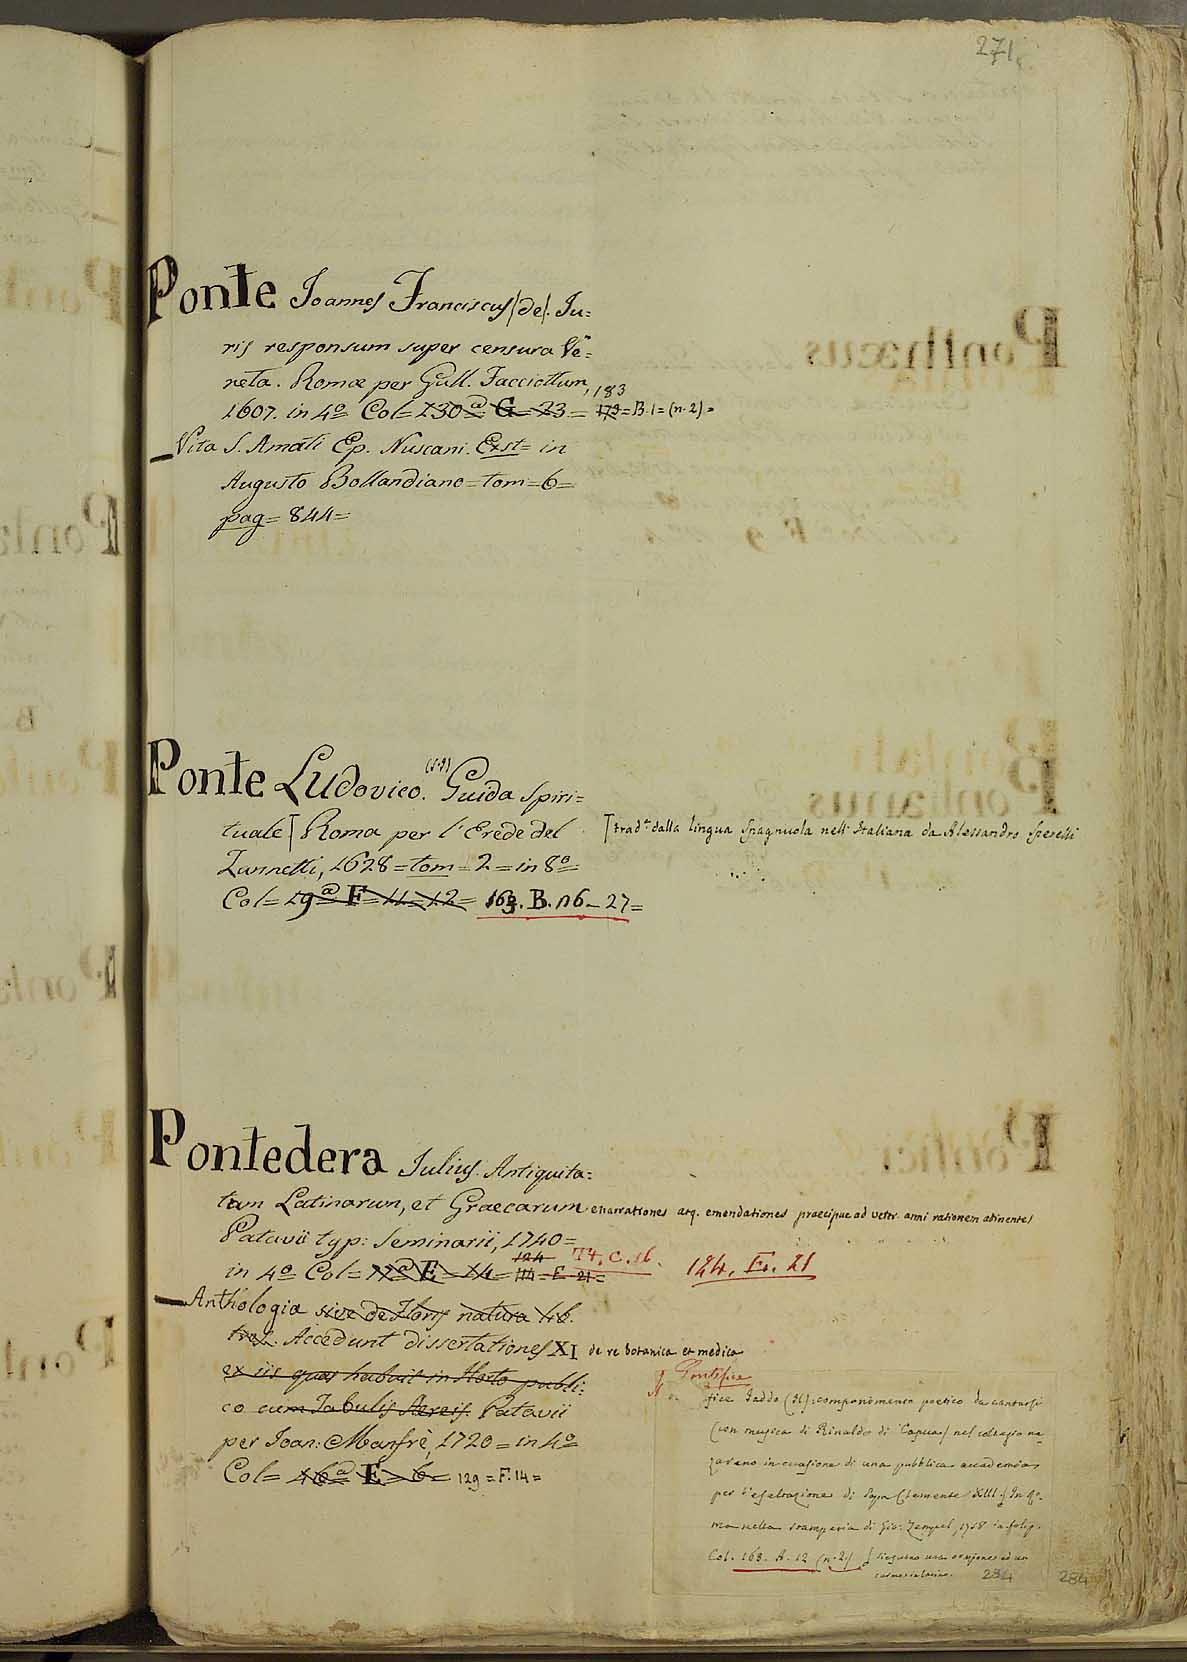 271.
Ponte Joannes Franciscus (de). Ju=
ris responsum super censura Ve=
neta. Romæ per Gull. Facciottum,
1607. in 4º Col= 130ª G= 23= 179 183 = B.1= (n. 2)=
Vita S. Amati Ep. Nuscani. Exst= in
Augusto Bollandiano= tom= 6=
pag= 844=
Ponte Ludovico. Guida Spiri=
tuale [ Roma per l'Erede del [trad.ª dalla lingua Spagnuola nell' Italiana da Alessandro Sperelli
Zannetti, 1628= tom= 2= in 8º=
Col= 19ª F= 11= 12= 163. B. 26- 27=
Pontedera Julius. Antiquita=
tum Latinarum, et Graecarum enarrationes atq. emendationes praecipue ad veter. anni rationem atinentes
Patavii typ: Seminarii, 1740=
in 4º Col= E= 14= 124 = F 21= T4. C. 16. 124. F. 21
Anthologia sive de Floris natura lib.
tres. Accedunt dissertationes XI de re botanica et medica
ex iis quas habuit in Horto publi:
co cum Tabulis Aereis. Patavii
per Joan: Manfrè, 1720= in 4º
Col= 16ª E= 6= 129= F. 14=
Pontefice
fice Taddo componimento poetico da cantarsi
(con musica di Rinaldo di Capua) nel collegio na-
zareno in occasione di una pubblica accademia
per l'esaltazione di Papa Clemente XIII. In Ro-
ma nella stamperia di Gio: Zempel, 1758 in folio.
Col. 168. A. 12 (n. 2) Sieguono una orazione ed un
carme latino. 284 284